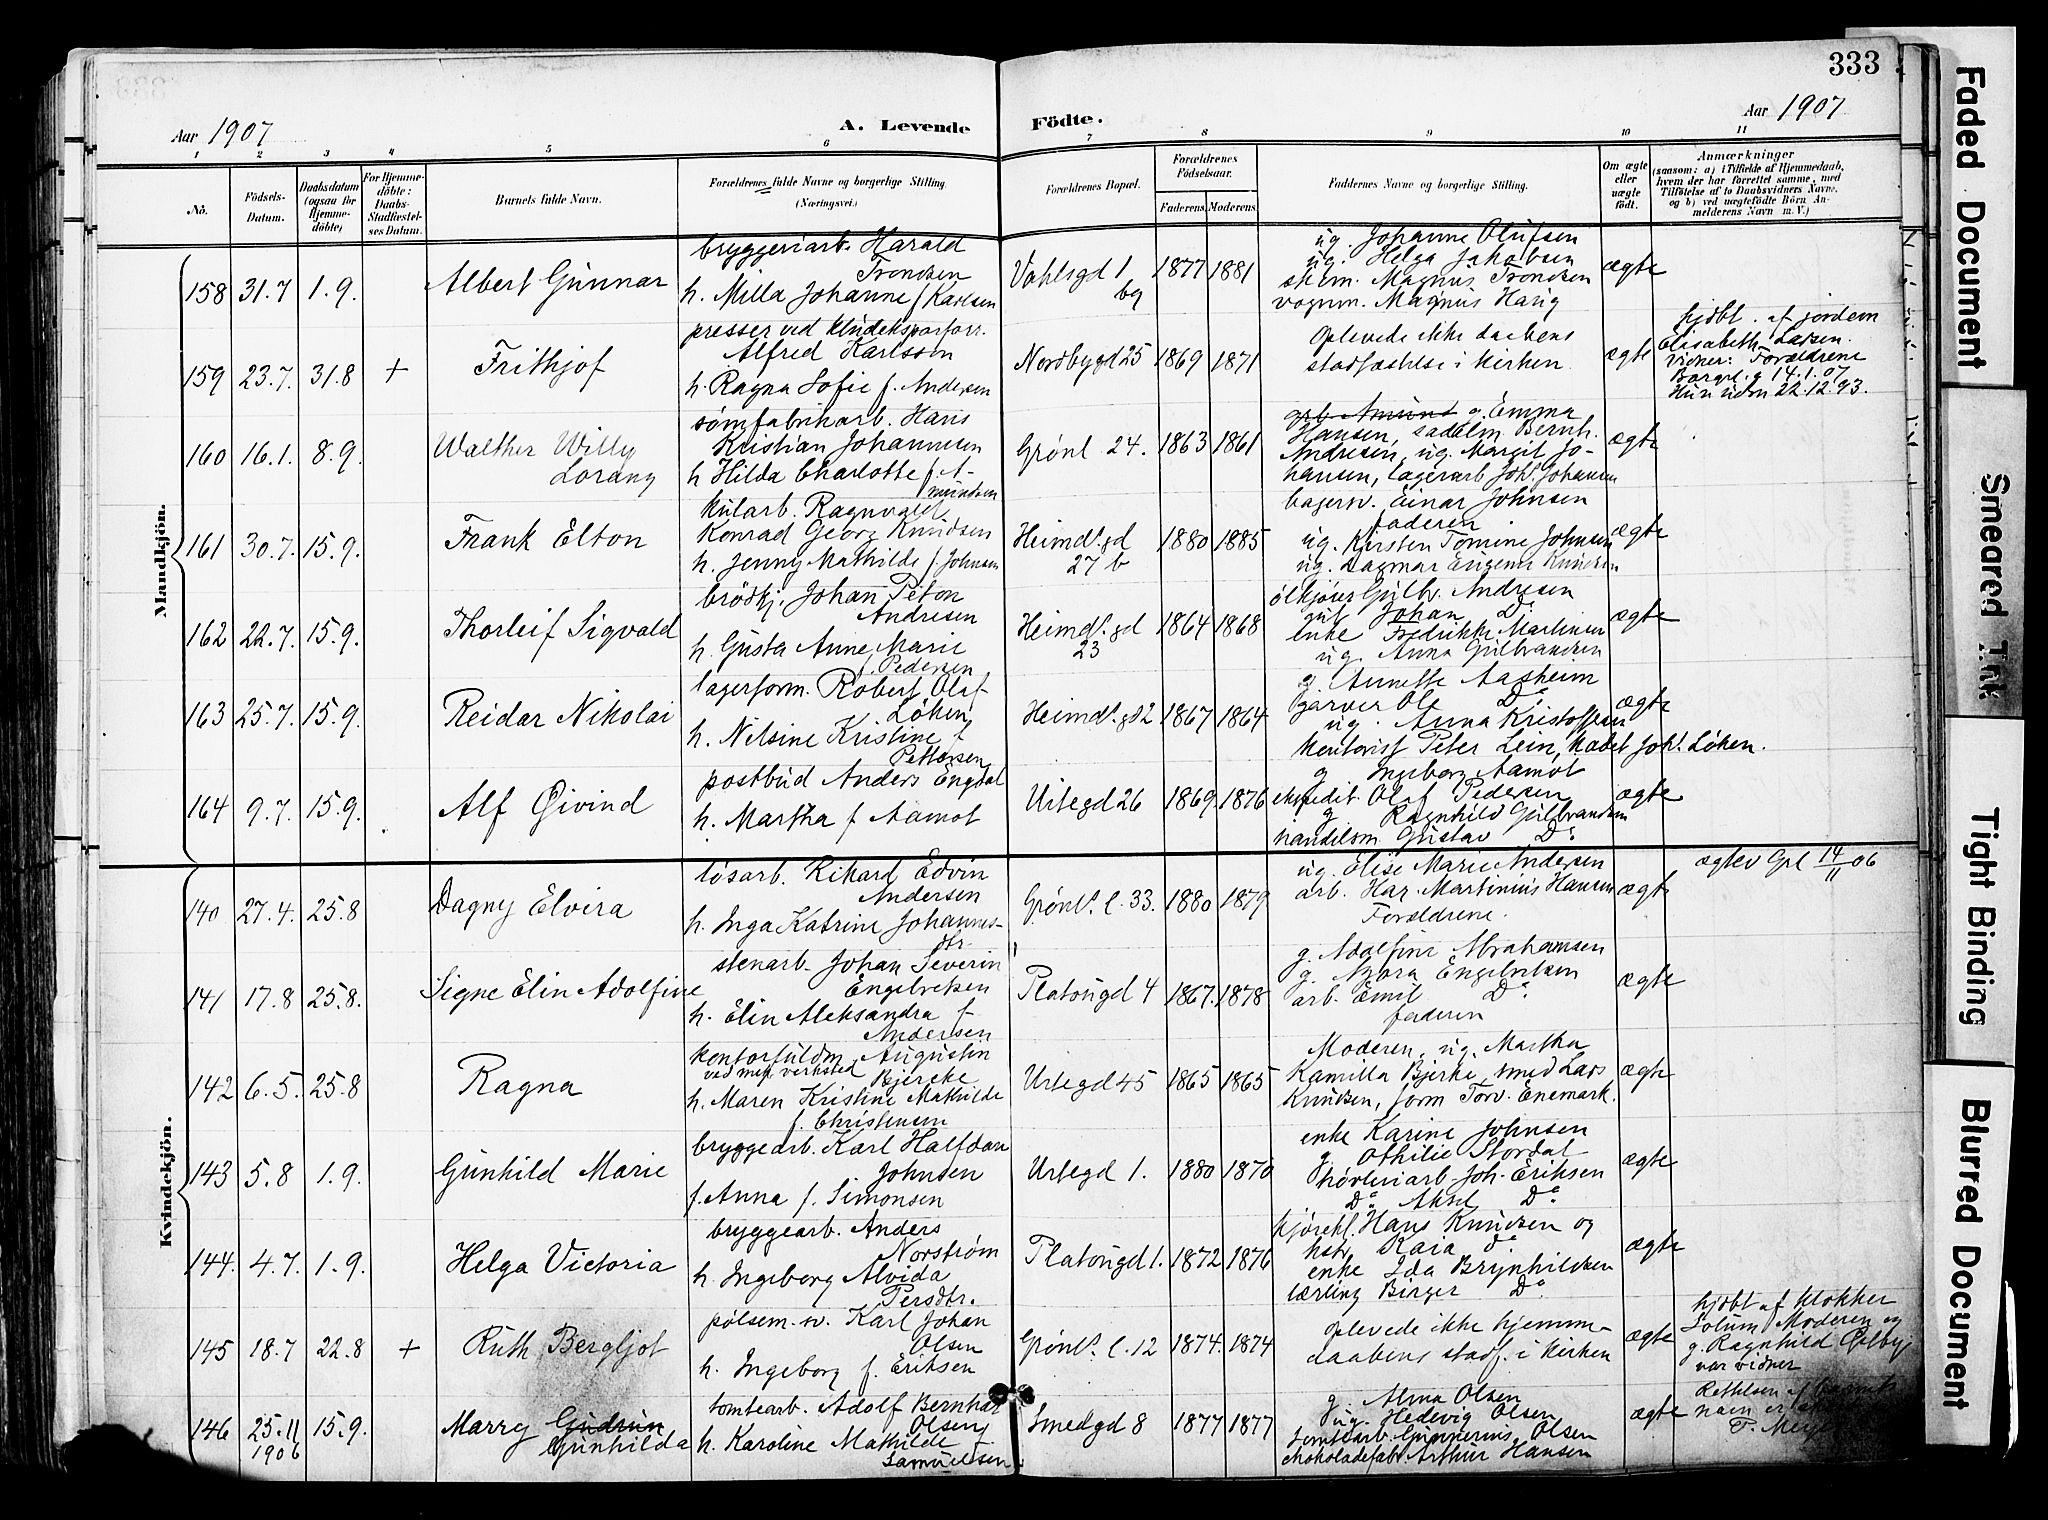 333
Aar 1907
A. Levende
Födte.
Aar 1907
1 2 3 4 5 6 7 8 9 10 11
No.
Födsels-Datum.
Daabsdatum (ogsaa for Hjemme-döbte)
For Hjemme-döbte: Daabs-Stadfæstel-ses Datum.
Barnets fulde Navn.
Forældrenes fulde Navne og borgerlige Stilling.
(Næringsvei.)
Forældrenes Bopæl.
Forældrenes Födselsaar.
Faderens. Moderens.
Faddernes Navne og borgerlige Stilling.
Om ægte eller uægte födt.
Anmærkninger
(saasom: a) i Tilfælde af Hjemmedaab, hvem der har forrettet samme, med Tilföielse af to Daabsvidners Navne, og b) ved uægtefödte Börn An-melderens Navn m. V.)
Mandkjön.
158 31.7 1.9. Albert Gunnar
bryggeriarb. Harald
Trondsen
h. Milla Johanne f. Karlsen
Vahlsgd 1 bg 1877 1881
ug. Johanne Olufsen
ug. Helga Jakobsen
Magnus Trondsen
vognm. Magnus Haug
ægte
159 23.7. 31.8 + Frithjof
presser ved
Alfred Karlsson
h. Ragna Sofie f. Andersen
Nordbygd 25 1869 1871
Oplevede ikke daabens
stadfæstelse i kirken
ægte
hjdbt. af jordem
Elisabeth Larsen.
Vidner: Forældrene
Borgvl. g 14.1.07
Hun udm 22.12.93.
160 16.1. 8.9. Walther Willy
Lorang
sømfabrikarb. Hans
Kristian Johannesen
h Hilda Charlotte f. A-
mundsen
Grønl 24. 1863 1861
arb. Amund g. Emma
Hansen, sadelm Bernh.
Andresen, ug. Margit Jo-
hansen, lagerarb Joh. Johansen
ægte
161 30.7. 15.9. Frank Elton
kularb. Ragnvald
Konrad Georg Knudsen
h. Jenny Mathilde f. Johnsen
Heimd.gd
27 b 1880 1885
bagersv. Einar Johnsen
faderen
ug. Kirsten Tomine Johnsen
ug. Dagmar Eugenie Knudsen
ægte
162 22.7. 15.9. Thorleif Sigvald
brødkj. Johan Peton
Andresen
h. Gusta Anne Marie
f. Pedersen
Heimd.gd
23 1864 1868
ølkjører Gulbr. Andresen
gut Johan Do
enke Fredrikke Martinsen
ug. Anna Gulbrandsen
ægte
163 25.7. 15.9. Reidar Nikolai
lagerform. Robert Olaf
Løken
h. Nilsine Kristine f
Pettersen
Heimd.gd 2 1867 1864
g. Annette Aasheim
garver Ole Do
ug. Anna Kristoffersen
kontorist Peter Lein, kadet Joh. Løken.
ægte
164 9.7. 15.9. Alf Øivind
postbud Anders Engdal
h. Martha f Aamot
Urtegd 26 1869. 1876
g Ingeborg Aamot
ekspedit. Olaf Pedersen
g Ragnhild Gulbrandsen
handelsm Gustav Do
ægte
Kvindekjön.
140 27.4. 25.8 Dagny Elvira
løsarb. Rikard Edvin
Andersen
h. Inga Katrine Johannes-
dtr.
Grønl. l. 33. 1880 1879
ug. Elise Marie Andersen
arb. Har. Martinius Hansen
Forældrene.
ægte
ægtev Grl 14/11 06
141 17.8 25.8. Signe Elin Adolfine
stenarb. Johan Severin
Engebretsen
h. Elin Aleksandra f
Andersen
Platougd 4 1867. 1878
g. Adolfine Abrahamsen
g. Engebretsen
arb. Emil Do
faderen
ægte
142 6.5. 25.8 Ragna
kontorfuldm. Augustin
ved mek. verksted Bjercke
h. Maren Kristine Mathilde
f. Christensen
Urtegd 45 1865 1865
Moderen, ug. Martha
Kamilla Bjerke, smed Lars
Knudsen, form Torv. Enemark.
ægte
143 5.8 1.9. Gunhild Marie
bryggearb. Karl Halfdan
Johnsen
f. Anna f. Simonsen
Urtegd 1. 1880 1870
enke Karine Johnsen
g Othilie Stordal
høvleriarb. Joh. Eriksen
Do Aksel Do
ægte
144. 4.7. 1.9. Helga Victoria
bryggearb. Anders
Norstrøm
h. Ingeborg Alvida
Persdtr.
Platougd 1. 1872 1876
kjørekl. Hans Knudsen og
hstr Kaia do
enke Ida Brynhildsen
lærling Birger Do
ægte
145 18.7 22.8 + Ruth Bergljot
pølsem. sv. Karl Johan
Olsen
h. Ingeborg f. Eriksen
Grønl. l. 12 1874. 1874
oplevede ikke hjemme-
daabens stadf. i kirken
ægte
hjdbt af klokker
Solum Moderen og
g. Ragnhild Østby
var vidner
146 25.11
1906 15.9. Marry Gudrun
Gunhilda
tomtearb. Adolf Bernhar
Olsen
h. Karoline Mathilde
Samuelsen
Smedgd 8 1877 1877
g Alma Olsen
ug. Hedevig Olsen
tomtearb Gunnerius Olsen
chokoladefabr. Arthur Hansen
ægte
Rettelsen af barnets
navn er
T. Meye
Faded Document
Smeared Ink
Tight Binding
Blurred Document